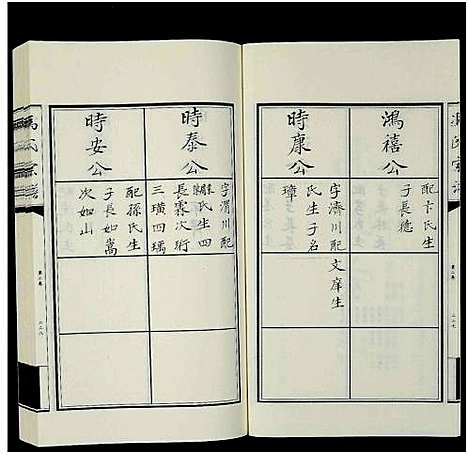 鴻禧公
配卞氏生
子長德
時康公
字濟川配
文庠生
氏生子名
璋
時泰公
字渭川配
氏生四
長霖次術
三璜四瑤
時安公
配孫氏生
子長如嵩
次如山
氏宗譜